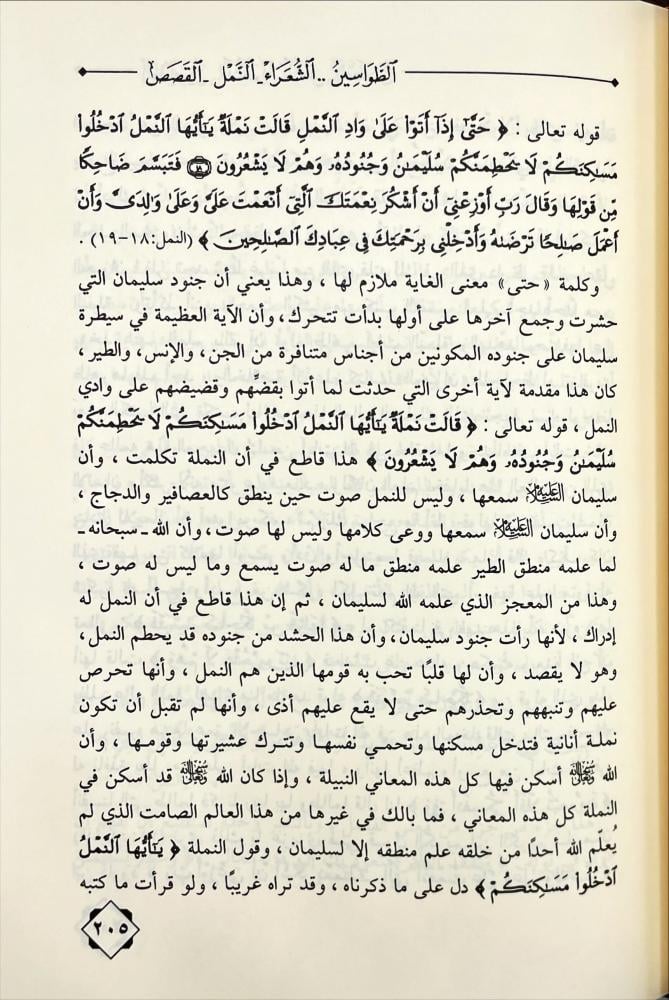 الطواسين .. الشعراء - النمل - القصص
قوله تعالى : ﴿ حَتَّىٰٓ إِذَآ أَتَوْا۟ عَلَىٰ وَادِ ٱلنَّمْلِ قَالَتْ نَمْلَةٌ يَٰٓأَيُّهَا ٱلنَّمْلُ ٱدْخُلُوا۟
مَسَٰكِنَكُمْ لَا يَحْطِمَنَّكُمْ سُلَيْمَٰنُ وَجُنُودُهُۥ وَهُمْ لَا يَشْعُرُونَ ۝١٨ فَتَبَسَّمَ ضَاحِكًا
مِّن قَوْلِهَا وَقَالَ رَبِّ أَوْزِعْنِىٓ أَنْ أَشْكُرَ نِعْمَتَكَ ٱلَّتِىٓ أَنْعَمْتَ عَلَىَّ وَعَلَىٰ وَٰلِدَىَّ وَأَنْ
أَعْمَلَ صَٰلِحًا تَرْضَىٰهُ وَأَدْخِلْنِى بِرَحْمَتِكَ فِى عِبَادِكَ ٱلصَّٰلِحِينَ ﴾ (النمل:١٨-١٩) .
وكلمة «حتى» معنى الغاية ملازم لها ، وهذا يعني أن جنود سليمان التي
حشرت وجمع آخرها على أولها بدأت تتحرك، وأن الآية العظيمة في سيطرة
سليمان على جنوده المكونين من أجناس متنافرة من الجن، والإنس، والطير،
كان هذا مقدمة لآية أخرى التي حدثت لما أتوا بقضِّهم وقضيضهم على وادي
النمل ، قوله تعالى : ﴿ قَالَتْ نَمْلَةٌ يَٰٓأَيُّهَا ٱلنَّمْلُ ٱدْخُلُوا۟ مَسَٰكِنَكُمْ لَا يَحْطِمَنَّكُمْ
سُلَيْمَٰنُ وَجُنُودُهُۥ وَهُمْ لَا يَشْعُرُونَ ﴾ هذا قاطع في أن النملة تكلمت ، وأن
سليمان عليه السلام سمعها ، وليس للنمل صوت حين ينطق كالعصافير والدجاج ،
وأن سليمان عليه السلام سمعها ووعى كلامها وليس لها صوت ، وأن الله ـ سبحانه ـ
لما علمه منطق الطير علمه منطق ما له صوت يسمع وما ليس له صوت ،
وهذا من المعجز الذي علمه الله لسليمان ، ثم إن هذا قاطع في أن النمل له
إدراك ، لأنها رأت جنود سليمان، وأن هذا الحشد من جنوده قد يحطم النمل،
وهو لا يقصد ، وأن لها قلبًا تحب به قومها الذين هم النمل ، وأنها تحرص
عليهم وتنبههم وتحذرهم حتى لا يقع عليهم أذى ، وأنها لم تقبل أن تكون
نملة أنانية فتدخل مسكنها وتحمي نفسها وتترك عشيرتها وقومها ، وأن
الله سبحانه وتعالى أسكن فيها كل هذه المعاني النبيلة ، وإذا كان الله سبحانه وتعالى قد أسكن في
النملة كل هذه المعاني ، فما بالك في غيرها من هذا العالم الصامت الذي لم
يُعلّم الله أحدًا من خلقه علم منطقه إلا لسليمان ، وقول النملة ﴿ يَٰٓأَيُّهَا ٱلنَّمْلُ
ٱدْخُلُوا۟ مَسَٰكِنَكُمْ ﴾ دل على ما ذكرناه ، وقد تراه غريبًا ، ولو قرأت ما كتبه
٢٠٥